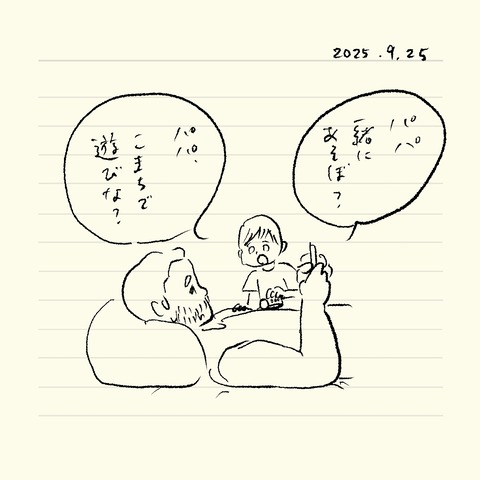 2025.9.25
パパ
一緒に
あそぼ?
パパ、
こまちで
遊びな?